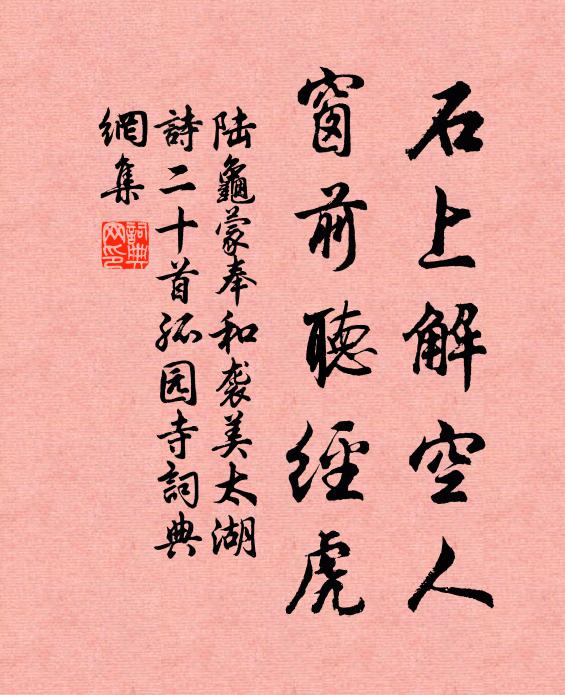 石上解空人
窗前聽經虎
陆龜蒙奉和袭美太湖
詩二十首孤园寺詞典
網集
詞典网印